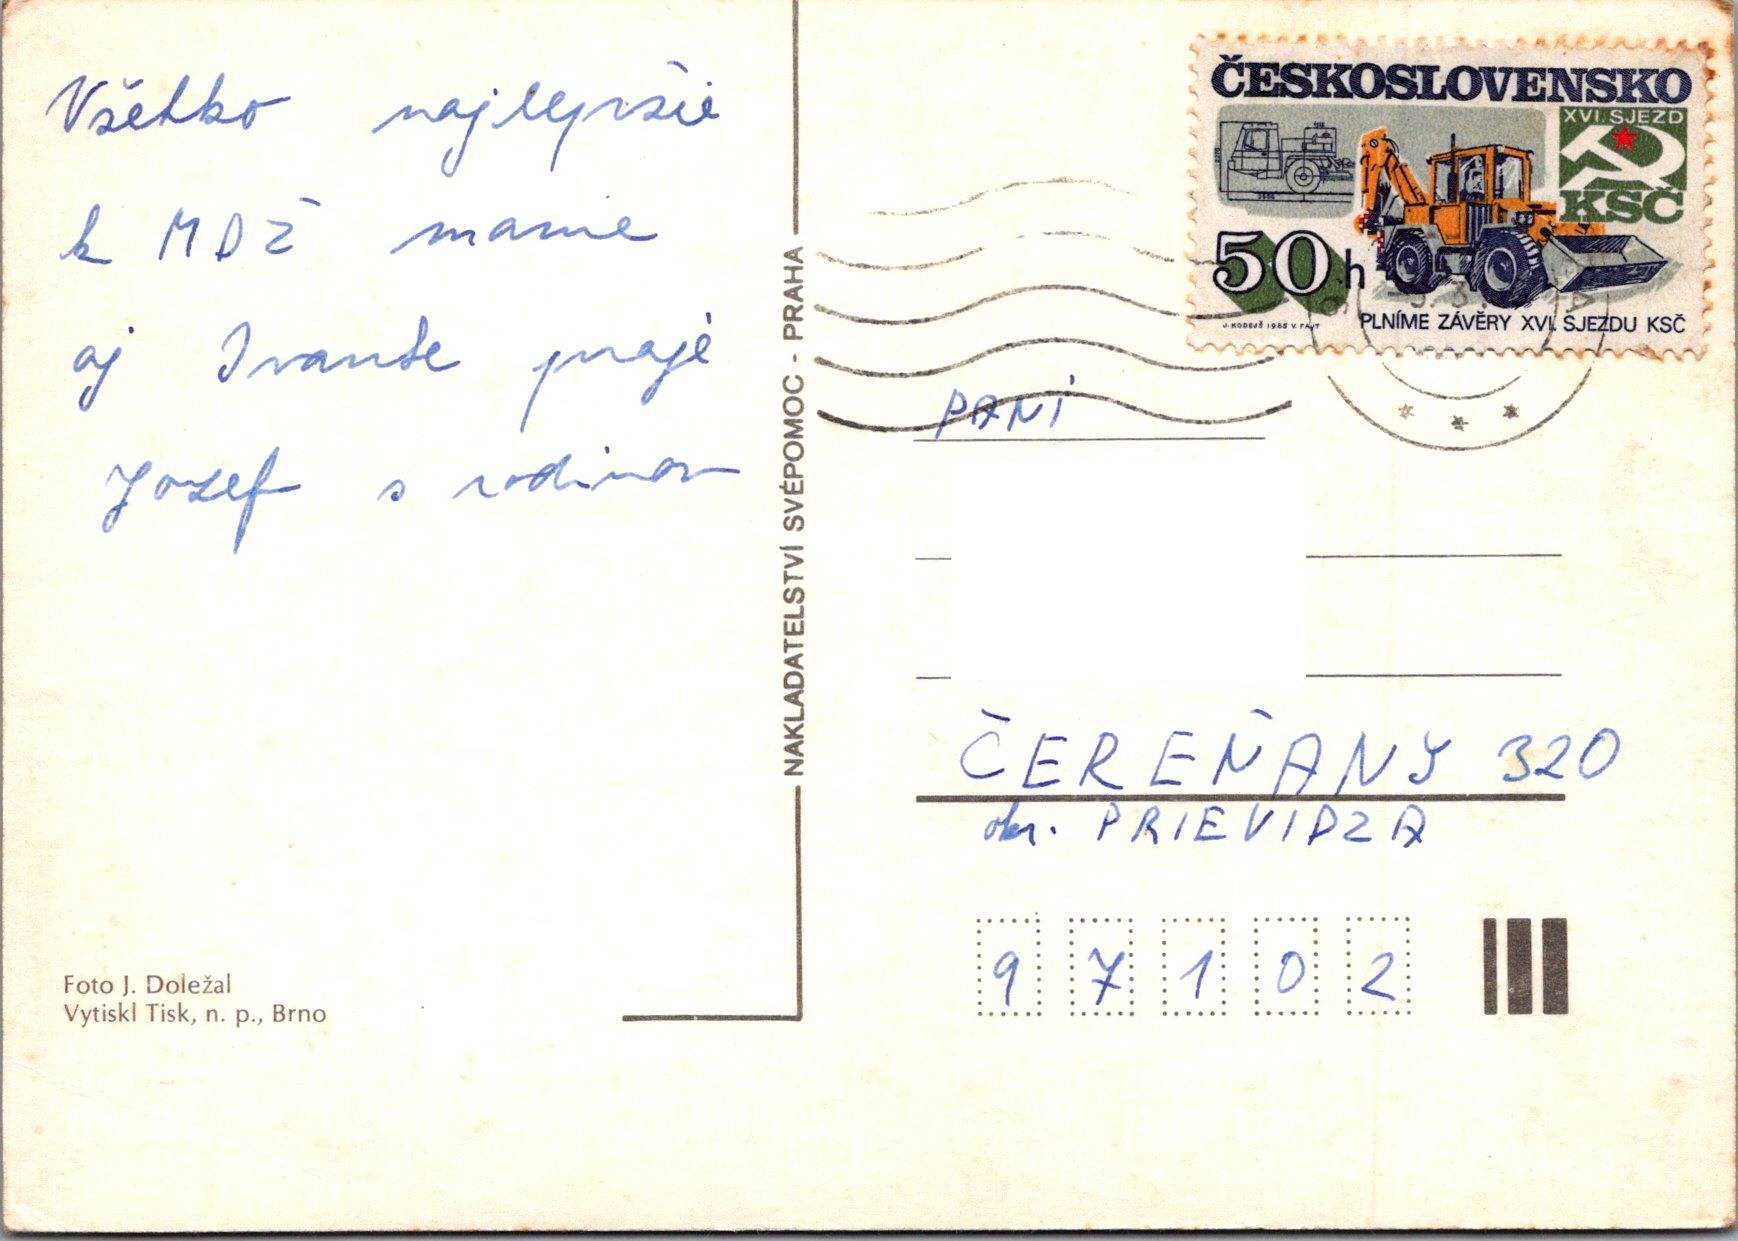 Všetko najlepšie
k MDŽ mame
aj Ivanke praje
Jozef s rodinou
Foto J. Doležal
Vytiskl Tisk, n. p., Brno
NAKLADATELSTVÍ SVÉPOMOC - PRAHA
ČESKOSLOVENSKO
XVI. SJEZD
KSČ
50 h
J. KODEJŠ 1985 V. FAJT
PLNÍME ZÁVĚRY XVI. SJEZDU KSČ
PANÍ
ČEREŇANY 320
okr. PRIEVIDZA
97102